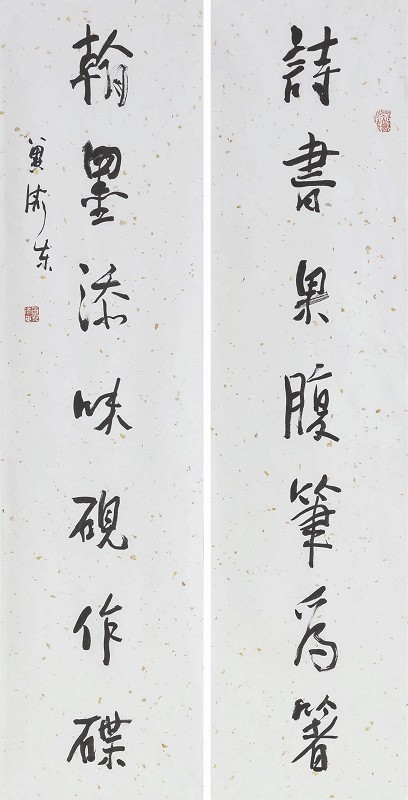 詩書果腹筆爲箸
翰墨添味硯作碟